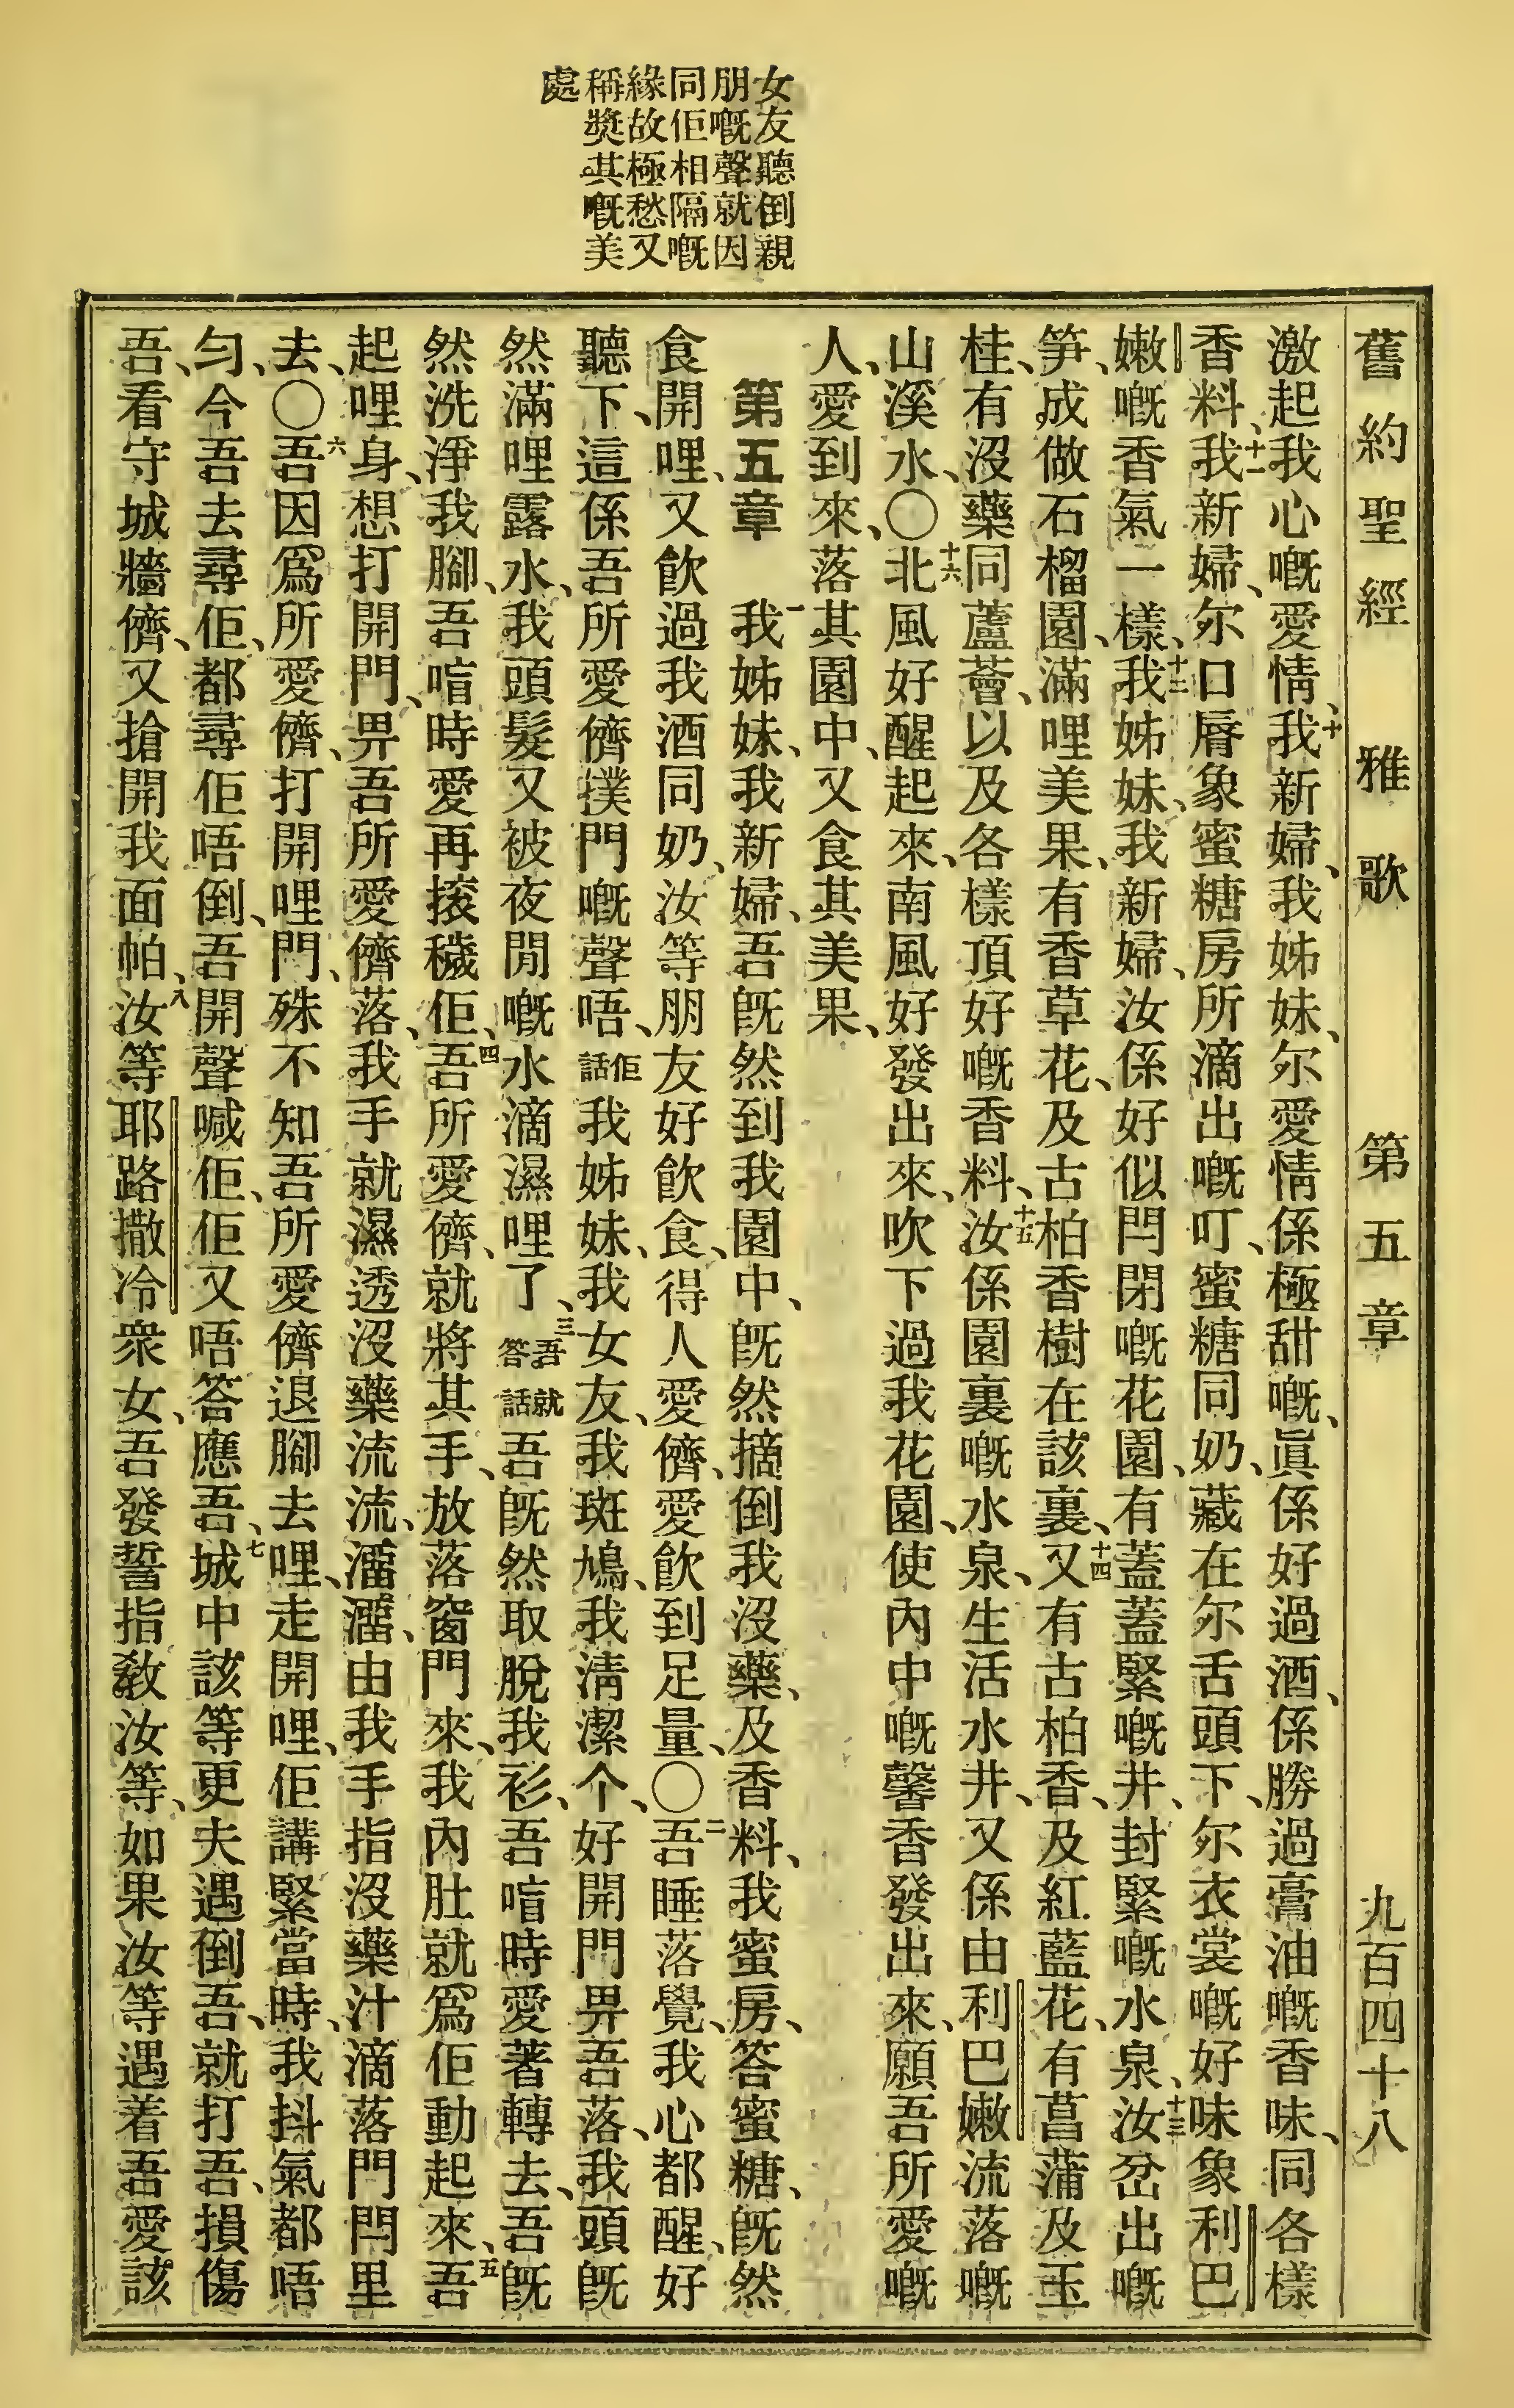 舊約聖經 雅歌 第五章 九百四十八
女友聽倒親
朋嘅聲就因
同佢相隔嘅
緣故極愁又
稱獎其嘅美
處
激起我心嘅愛情、十我新婦、我姊妹、尔愛情係極甜嘅、眞係好過酒、係勝過膏油嘅香味、同各樣
香料、十一我新婦、尔口脣象蜜糖房所滴出嘅叮、蜜糖同奶、藏在尔舌頭下、尔衣裳嘅好味象利巴
嫩嘅香氣一樣、十二我姊妹、我新婦、汝係好似閂閉嘅花園、有蓋蓋緊嘅井、封緊嘅水泉、十三汝岔出嘅
笋、成做石榴園、滿哩美果、有香草花、及古柏香樹在該裏、十四又有古柏香、及紅藍花、有菖蒲及玉
桂、有沒藥同蘆薈、以及各樣頂好嘅香料、十五汝係園裏嘅水泉、生活水井、又係由利巴嫩流落嘅
山溪水、〇十六北風好醒起來、南風好發出來、吹下過我花園、使內中嘅馨香發出來、願吾所愛嘅
人、愛到來、落其園中、又食其美果、
第五章 一我姊妹、我新婦、吾旣然到我園中、旣然摘倒我沒藥、及香料、我蜜房、答蜜糖、旣然
食開哩、又飮過我酒同奶、汝等朋友好飮食、得人愛儕、愛飮到足量、〇二吾睡落覺、我心都醒、好
聽下、這係吾所愛儕撲門嘅聲唔、佢話我姊妹、我女友、我斑鳩、我淸潔个、好開門畀吾落、我頭旣
然滿哩露水、我頭髮又被夜間嘅水滴濕哩了、三吾就答話吾旣然取脫我衫、吾喑時愛著轉去、吾旣
然洗淨我腳、吾喑時愛再㨃穢佢、四吾所愛儕、就將其手、放落窗門來、我內肚就爲佢動起來、五吾
起哩身、想打開門、畀吾所愛儕落、我手就濕透沒藥流流、𤄙𤄙、由我手指沒藥汁滴落門閂里
去、〇六吾因爲所愛儕、打開哩門、殊不知吾所愛儕退腳去哩、走開哩、佢講緊當時、我抖氣都唔
匀、今吾去尋佢、都尋佢唔倒、吾開聲喊佢、佢又唔答應吾、七城中該等更夫遇倒吾、就打吾、損傷
吾、看守城牆儕、又搶開我面帕、八汝等耶路撒冷衆女、吾發誓指敎汝等、如果汝等遇着吾愛該